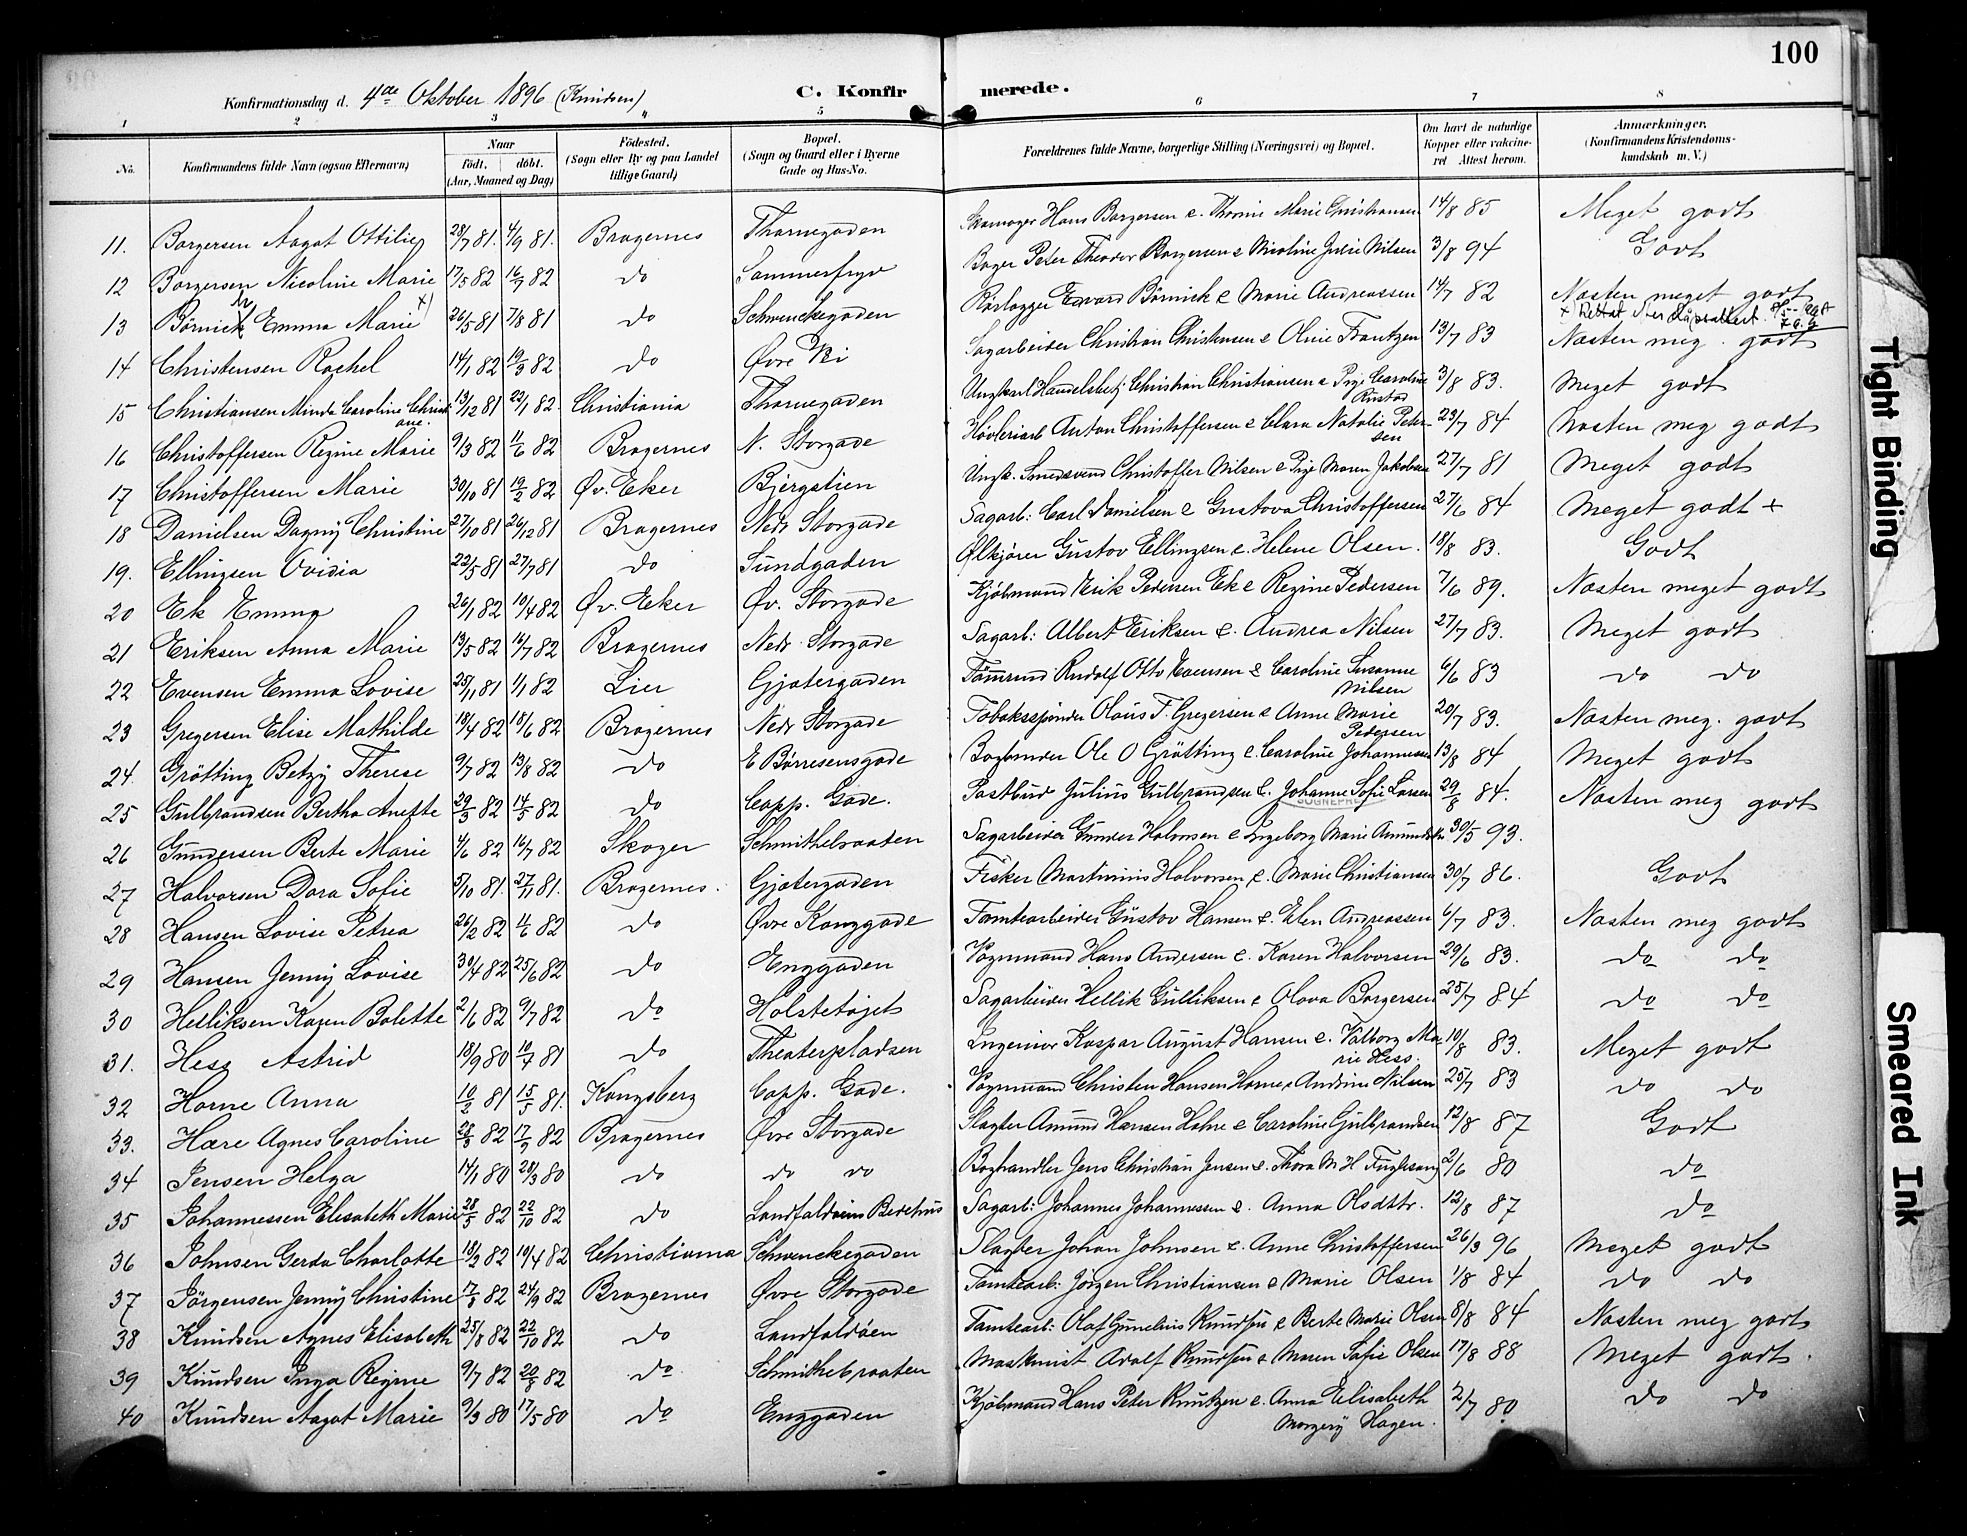 100
Konfirmationsdag d. 4de Oktober 1896 (Knudsen)
C. Konfirmerede.
1 2 3 4 5 6 7 8
No. Konfirmandens fulde Navn (ogsaa Efternavn) Naar født, døbt. (Aar, Maaned og Dag) Fødested. (Sogn eller By og paa Landet tillige Gaard) Bopæl. (Sogn og Gaard eller i Byerne Gade og Hus-No. Forældrenes fulde Navne, borgerlige Stilling (Næringsvei) og Bopæl. Om havt de naturlige Kopper eller vaccineret Attest herom. Anmærkninger. (Konfirmandens Kristendomskundskab m. V.)
11. Borgersen Aagot Ottilie 28/7 81. 4/9 81. Bragernes Thornegaden Skomager Hans Borgersen & Thomine Marie Christiansen 14/8 85 Meget godt
12 Borgersen Nicoline Marie 17/5 82 16/7 82 do Sommerfryd Bager Peter Theodor Borgersen & Nicoline Julie Nilsen 3/8 94 Godt
13 Børnick Emma Marie x) 26/5 81 7/8 81 do Schwenckegaden Rørlægger Edvard Børnick & Marie Andreassen 14/7 82 Næsten meget godt
14 Christensen Rachel 14/1 82 19/3 82 do Øvre Vei Sagarbeider Christian Christensen & Oline Frantzen 13/7 83 Næsten meg. godt
15 Christiansen Minda Caroline Christiane. 13/12 81 22/1 82 Christiania Thornegaden Ungkarl Handelsbetj. Christian Christiansen & Pige Caroline Rustad 3/8 83. Meget godt
16 Christoffersen Regine Marie 9/3 82 11/6 82 Bragernes N. Storgade Høvleriarb Anton Christoffersen & Clara Natalie Petersen 23/7 84 Næsten meg godt
17 Christoffersen Marie 30/10 81 19/2 82 Øv. Eker Bjergstien Ungk. Smedsvend Christoffer Nilsen & Pige Maren Jakobsen 27/7 81 Meget godt
18 Danielsen Dagny Christine 27/10 81 26/12 81 Bragernes Nedr Storgade Sagarb: Carl Danielsen & Gustava Christoffersen 27/6 84 Meget godt +
19. Ellingsen Ovidia 22/5 81 27/7 81 do Sundgaden Ølkjører Gustav Ellingsen & Helene Olsen. 18/8 83. Godt
20 Ek Emma 26/1 82 10/4 82 Øv. Eker Øv. Storgade Kjøbmand Erik Pedersen Ek & Regine Pedersen 7/6 89. Næsten meget godt
21 Eriksen Anna Marie 13/5 82 16/7 82 Bragernes Nedr Storgade Sagarb: Albert Eriksen & Andrea Nilsen 27/7 83. Meget godt
22 Evensen Emma Lovise 25/11 81 1/1 82 Lier Gjætergaden Tømrmd Rudolf Otto Evensen & Caroline Susanne Nilsen 6/6 83 do do
23 Gregersen Elise Mathilde 18/4 82 18/6 82 Bragernes Nedr Storgade Tobaksspinder Olaus T. Gregersen & Anne Marie Pedersen 20/7 83. Næsten meg. godt
24. Grøtting Betzy Therese 9/7 82 13/8 82 do E Børresensgade Bogbinder Ole O Grøtting & Caroline Johannesen 13/8 84 Meget godt
25 Gulbrandsen Bertha Anette 29/3 82 14/5 82 do Capp. Gade. Postbud Julius Gulbrandsen & Johanne Sofie Larsen 29/8 84. Næsten meg godt
26 Gundersen Berte Marie 4/6 82 16/7 82 Skoger Schmithebraaten Sagarbeider Gunder Halvorsen & Ingeborg Marie 30/5 93.
27 Halvorsen Dora Sofie 5/10 81. 27/11 81. Bragernes. Gjætergaden Fisker Martinius Halvorsen & Marie Christiansen 30/7 86. Godt
28 Hansen Lovise Petrea 26/2 82 11/6 82 do Øvre Konggade Tomtearbeider Gustav Hansen & Elen Andreassen 6/7 83. Næsten meg godt
29 Hansen Jenny Lovise 30/4 82 25/6 82 do Enggaden Vognmand Hans Andersen & Karen Halvorsen 29/6 83. do do
30 Helliksen Karen Bolette 2/6 82 9/7 82 do Holstetøjet Sagarbeider Hellik Gulliksen & Olava Borgersen 25/7 84 do do
31. Hess Astrid 18/9 80 10/7 81 do Theaterpladsen Ingeniør Kaspar August Hansen & Valborg Marie Hess. 10/8 83. Meget godt
32 Horne Anna 10/2 81 15/5 81. Kongsberg Capp. Gade. Vognmand Christen Hansen Horne & Andrine Nilsen 25/7 83 do do
33. Hære Agnes Caroline 28/3 82 17/9 82 Bragernes Øvre Storgade Slagter Amund Hansen Hohre & Caroline Gulbrandsen 12/8 87 Godt
34 Jensen Helga 14/1 80 28/3 80 do do do Boghandler Jens Christian Jensen & Thora M H Fuglesang 2/6 80 do
35 Johannessen Elisabeth Marie 28/5 82 22/10 82 do Landfaldøens Bedehus Sagarb: Johannes Johannessen & Anna Olsdttr. 12/8 87 do
36 Johnsen Gerda Charlotte 18/2 82 10/4 82 Christiania Schwenckegaden Slagter Johan Johnsen & Anne Christoffersen 26/3 96 Meget godt
37 Jørgensen Jenny Christine 17/3 82 24/9 82 Bragernes Øvre Storgade Tomtearb: Jørgen Christiansen & Marie Olsen 1/8 84 do do
38 Knudsen Agnes Elisabeth 25/8 82 22/10 82 do Landfaldøen Tomtearb: Olaf Gunelius Knudsen & Berte Marie Olsen 8/8 84 Næsten meg godt
39 Knudsen Inga Regine 9/7 82 20/8 82 do Schmithebraaten Maskinist Adolf Knudsen & Maren Sofie Olsen 17/8 88 Meget godt.
40 Knudsen Aagot Marie 9/3 80 17/5 80 do Enggaden Kjøbmand Hans Peter Knutzen & Anna Elisabeth Margery Hagen. 2/7 80 do do
SOGNEPRE
Tight Binding
Smeared Ink